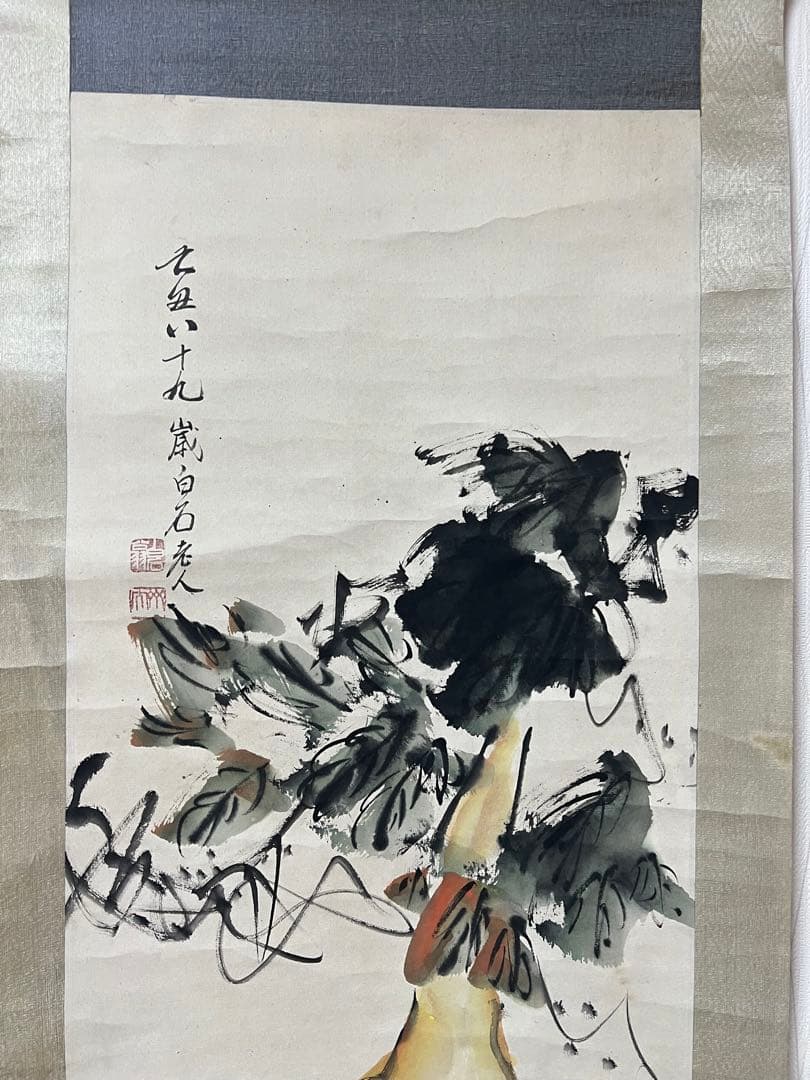 己丑八十九歲白石老人